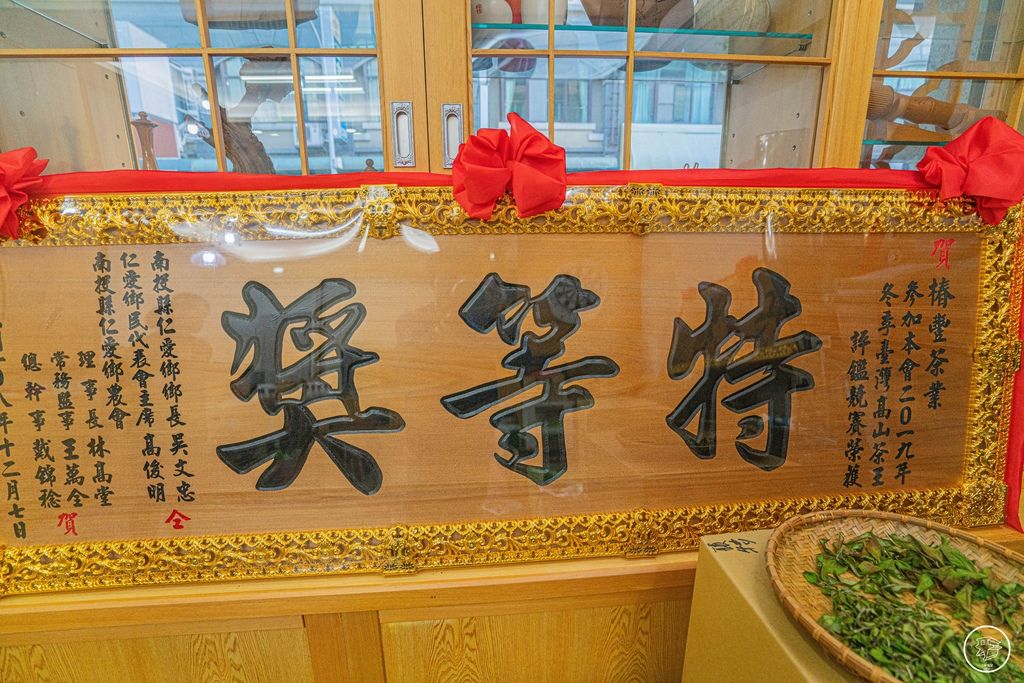 賀
椿豐茶業
參加本會二０一九年
冬季臺灣高山茶王
評鑑競賽榮獲
特等獎
南投縣仁愛鄉鄉長 吳文忠
仁愛鄉民代表會主席 高俊明
仝
南投縣仁愛鄉農會
理事長 林高堂
常務監事 王萬全
總幹事 戴錦
賀
八年十二月七日